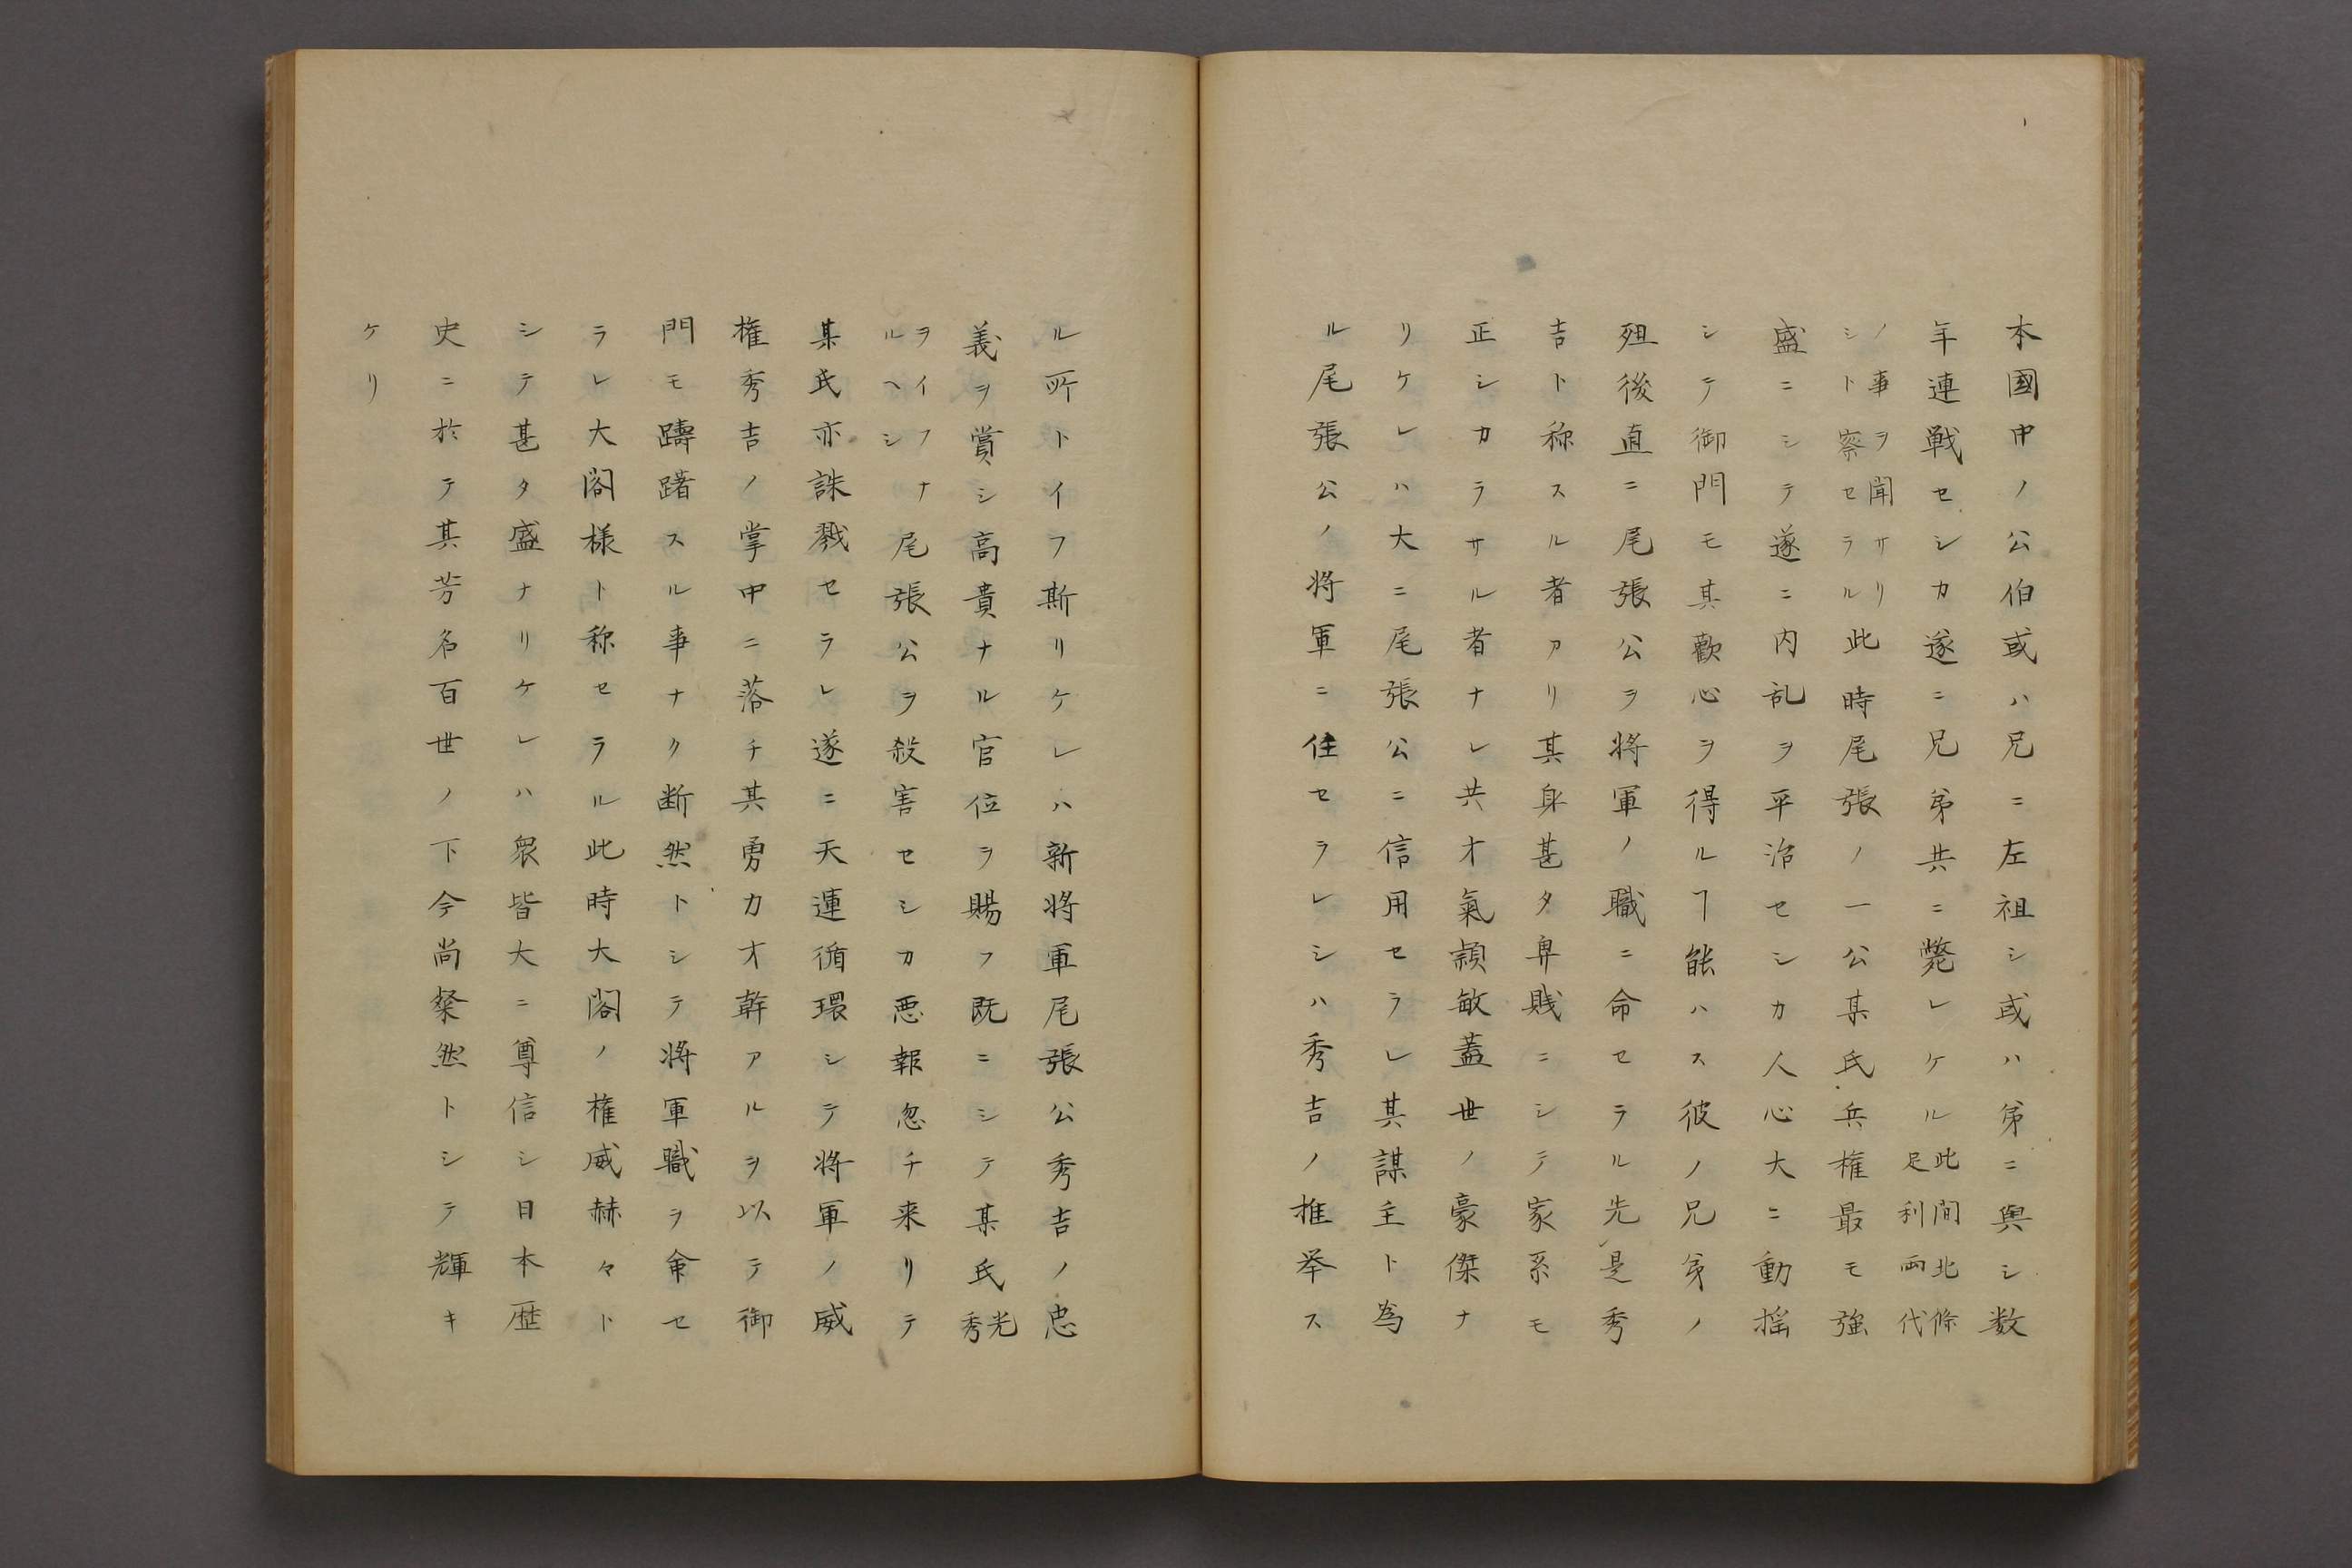 本國中ノ公伯或ハ兄ニ左祖シ或ハ弟ニ與シ数
年連戦セシカ遂ニ兄弟共ニ斃レケル此間北條足利両代
ノ事ヲ聞サリシト察セラル此時尾張ノ一公某氏兵権最モ強
盛ニシテ遂ニ内乱ヲ平治セシカ人心大ニ動揺
シテ御門モ其歡心ヲ得ルヿ能ハス彼ノ兄弟ノ
殂後直ニ尾張公ヲ将軍ノ職ニ命セラル先是秀
吉ト称スル者アリ其身甚タ卑賎ニシテ家系モ
正シカラサル者ナレ共才氣頴敏蓋世ノ豪傑ナ
リケレハ大ニ尾張公ニ信用セラレ其謀主ト為
ル尾張公ノ将軍ニ住セラレシハ秀吉ノ推举ス
ル所トイフ斯リケレハ新将軍尾張公秀吉ノ忠
義ヲ賞シ高貴ナル官位ヲ賜フ既ニシテ某氏光秀
ヲイフナルヘシ尾張公ヲ殺害セシカ悪報忽チ来リテ
某氏亦誅戮セラレ遂ニ天運循環シテ将軍ノ威
権秀吉ノ掌中ニ落チ其勇力才幹アルヲ以テ御
門モ躊躇スル事ナク断然トシテ将軍職ヲ命セ
ラレ大閤様ト称セラル此時大閤ノ権威赫々ト
シテ甚タ盛ナリケレハ衆皆大ニ尊信シ日本歴
史ニ於テ其芳名百世ノ下今尚粲然トシテ輝キ
ケリ